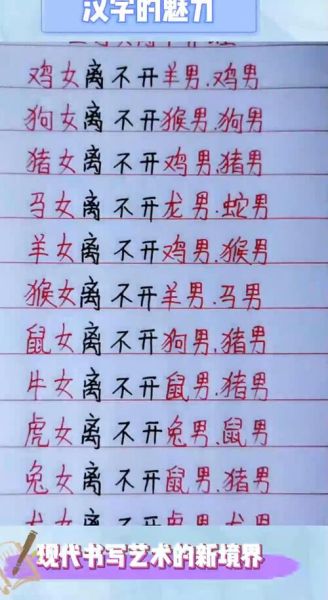 汉字的魅力
鸡女离不开羊男.鸡男
狗女离不开猴男.狗男
猪女离不开鸡男.猪男
马女离不开龙男.蛇男
羊女离不开鸡男.猴男
猴女离不开羊男.马男
鼠女离不开狗男.猪男
牛女离不开鼠男.猪男
虎女离不开兔男.鼠男
兔女离不开鼠男.猪男
现代书写艺术的新境界